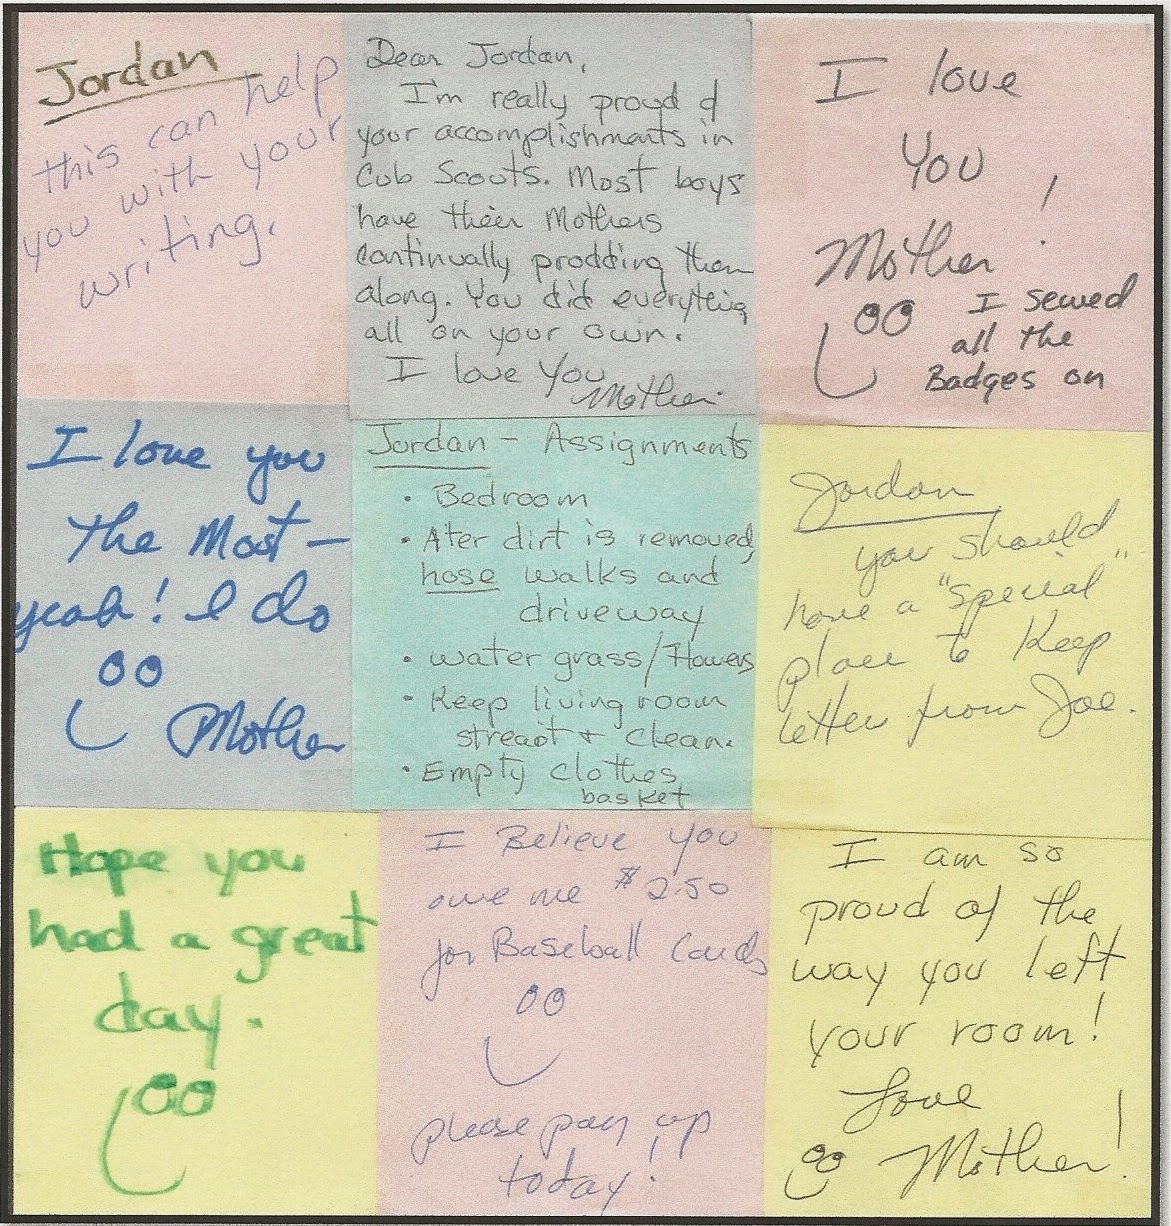 Jordan
this can help
you with your
writing.
Dear Jordan,
I'm really proud of
your accomplishments in
Cub Scouts. Most boys
have their Mothers
continually prodding them
along. You did everything
all on your own.
I love You
Mother
I love
You !
Mother
I sewed
all the
Badges on
I love you
the Most -
yeah! I do
Mother
Jordan - Assignments
• Bedroom
• Ater dirt is removed,
hose walks and
driveway
• water grass/flowers
• Keep living room
streaot + clean.
• Empty clothes
basket
Jordan
you should
have a "special"
place to keep
letter from Joe.
Hope you
had a great
day.
I Believe you
owe me $2.50
for Baseball Cards
please pay up
today!
I am so
proud of the
way you left
your room!
Love
Mother!